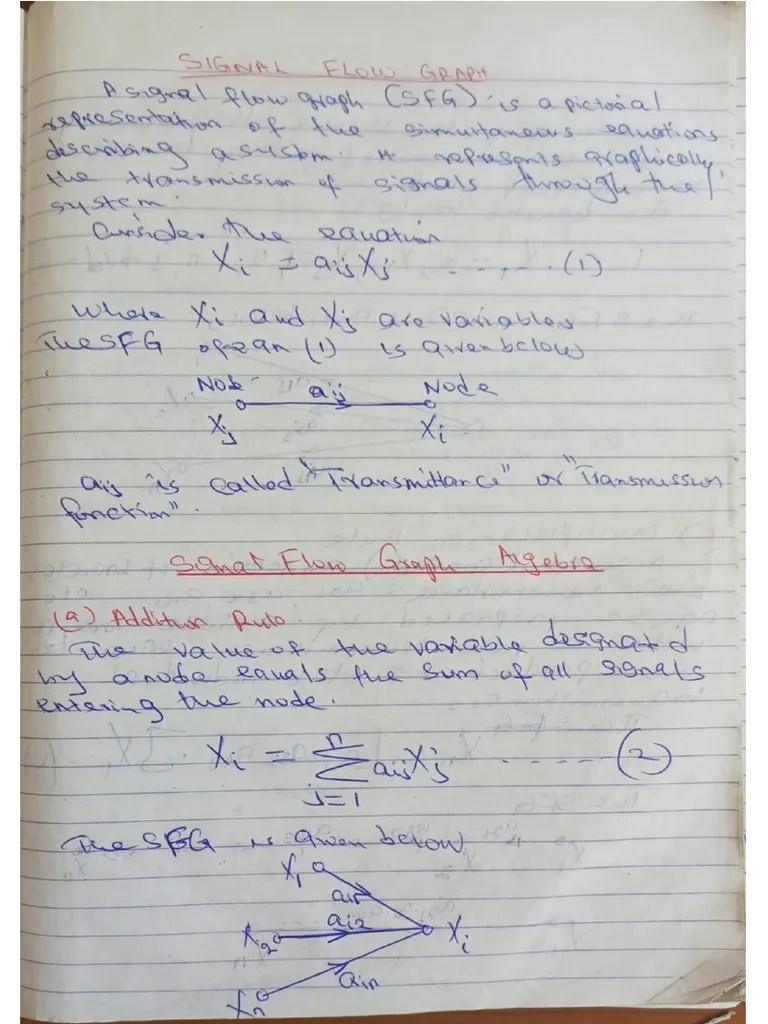 SIGNAL FLOW GRAPH
A signal flow graph (SFG) is a pictorial
representation of the simultaneous equations
describing a system. It represents graphically,
the transmission of signals through the
system.
Consider the equation
Xi = aijXj ---- · (1)
Where Xi and Xj are variables
The SFG of eqn (1) is given below
Node aij Node
Xj Xi
aij is called "Transmittance" or "Transmission
function".
Signal Flow Graph Algebra
(a) Addition Rule
The value of the variable designated
by a node equals the sum of all signals
entering the node.
Xi = n∑j=1 aijXj ------ (2)
The SFG is given below
X1
ai1
ai2
X2 Xi
ain
Xn